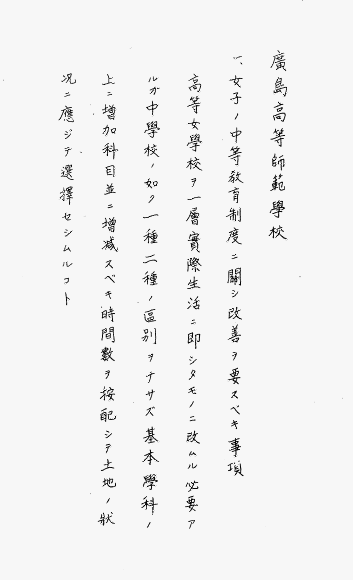 廣島高等師範學校
一、女子ノ中等教育制度ニ關シ改善ヲ要スベキ事項
高等女學校ヲ一層實際生活ニ即シタモノニ改ムル必要ア
ルガ中學校ノ如ク一種二種ノ區別ヲナサズ基本學科ノ
上ニ增加科目並ニ增減スベキ時間數ヲ按配シテ土地ノ狀
况ニ應ジテ選擇セシムルコト